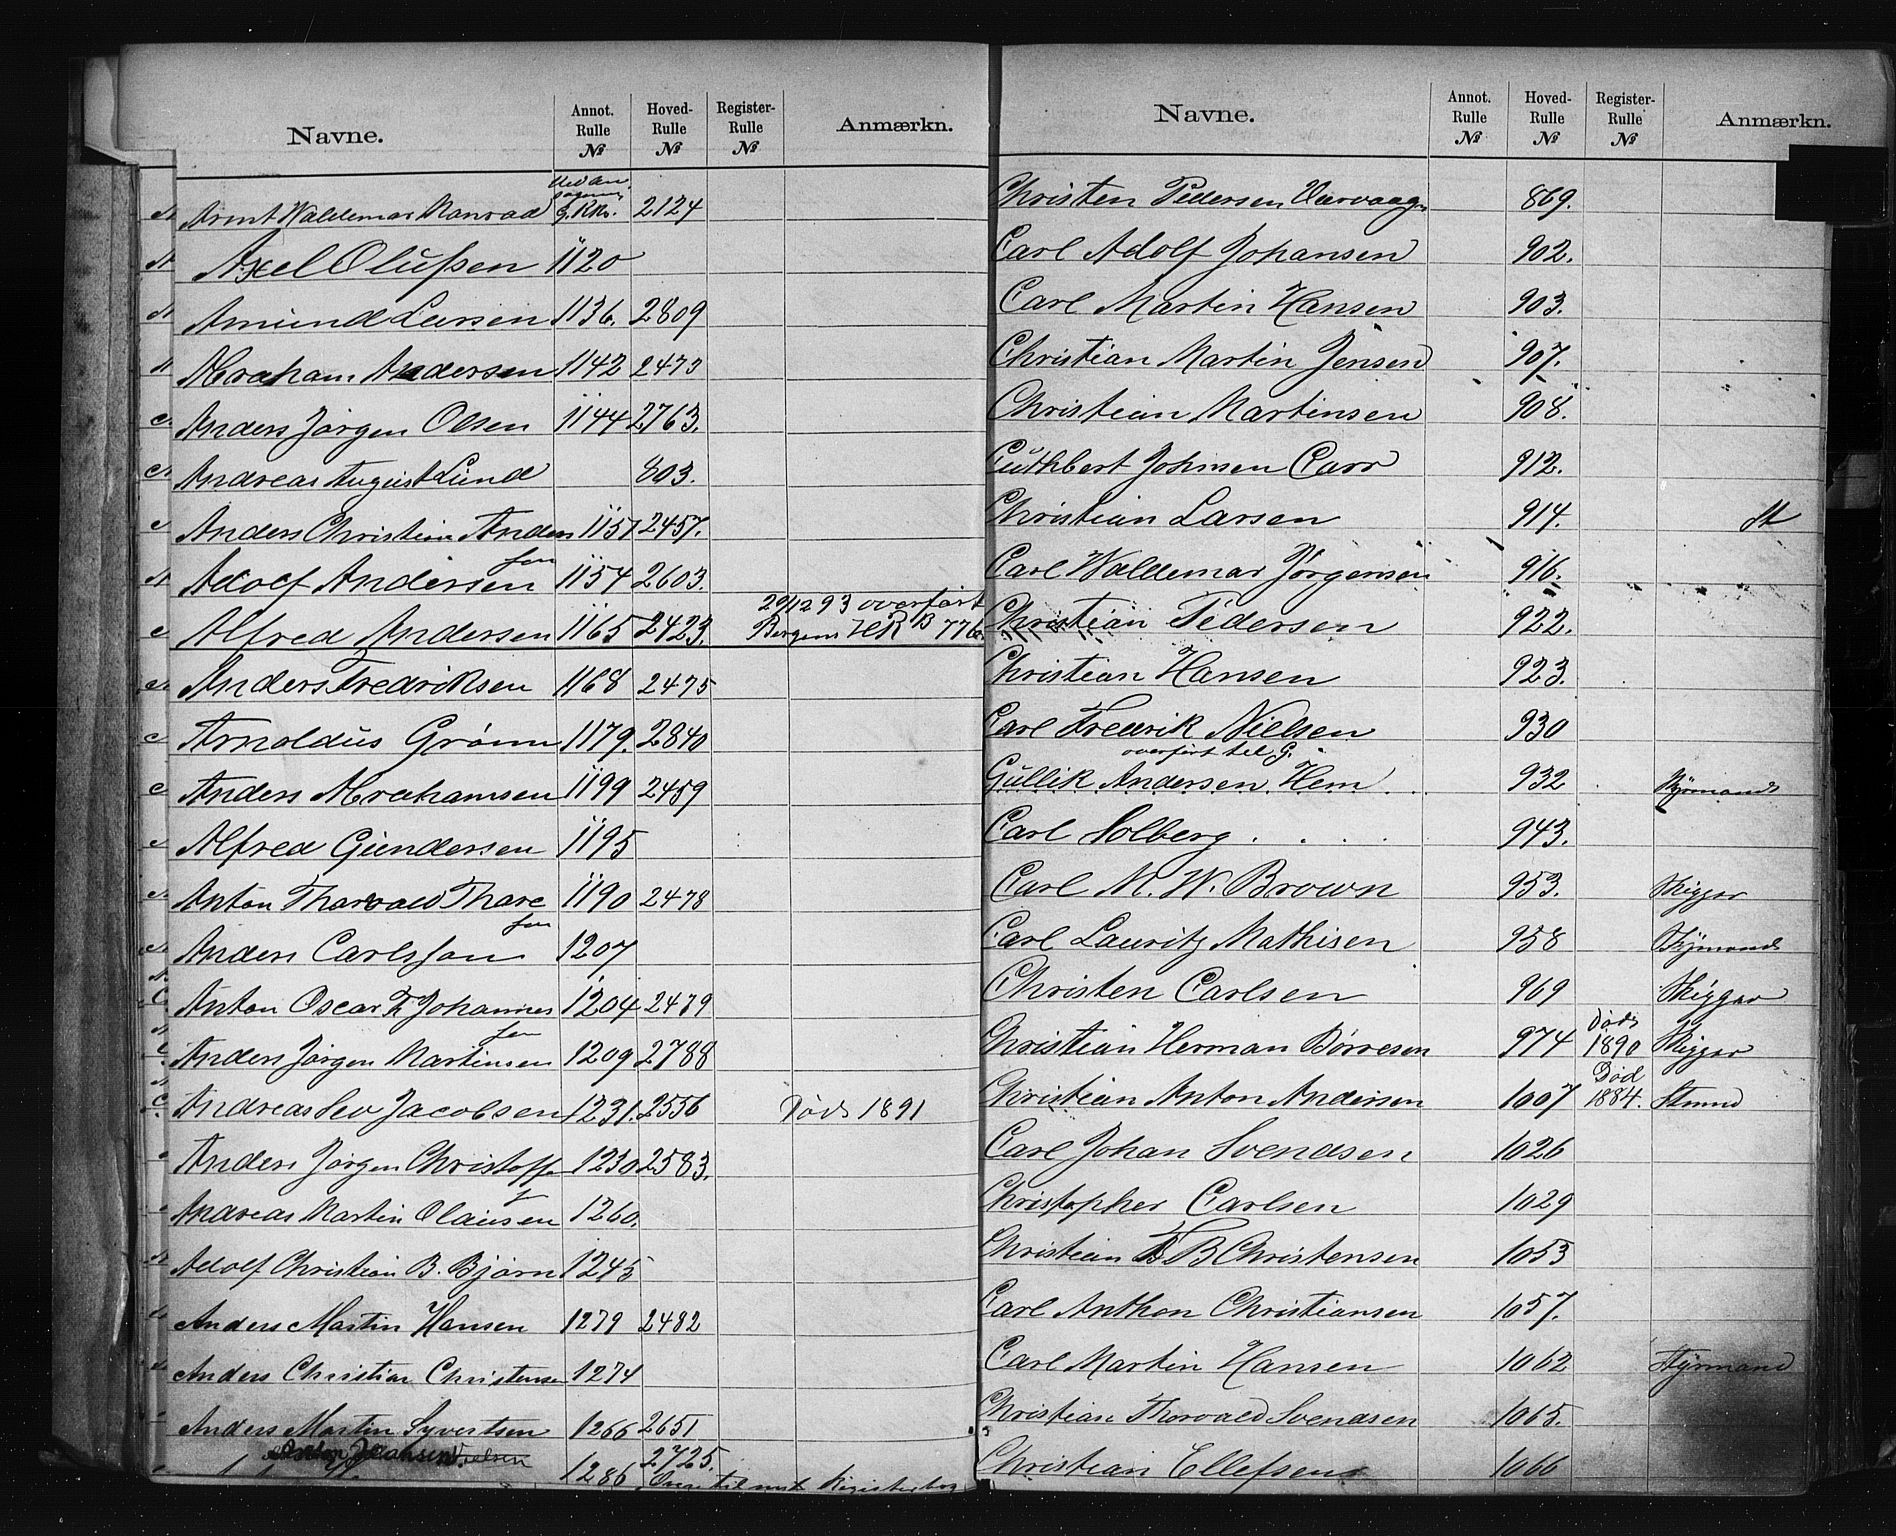 Navne. Annot. Rulle № Hoved-Rulle № Register-Rulle № Anmærkn.
Arnt Waldemar Konrad 2124
Axel Olufsen 1120
Amund Larsen 1136. 2809
Abraham Andersen 1142 2473
Anders Jörgen Olsen 1144 2763.
Andreas August Lund 803.
Anders Christian Anders 1151 2457.
sen
Adolf Andersen 1154 2603.
Alfred Andersen 1165 2423. 29/12 93 overfört
Bergens HR B 776
Anders Fredriksen 1168 2475
Arnoldus Grönn 1179. 2840
Anders Abrahamsen 1199 2459
Alfred Gundersen 1195
Anton Thorvald Thore 1190 2478
sen
Anders Carlsson 1207
Anton Oscar F. Johannes 1204 2479
sen
Anders Jörgen Martinsen 1209 2788
Andreas Jacobsen 1231. 2556 Död 1891
Anders Jörgen Christoffe 1230 2583.
Andreas Martin Olausen 1260.
Adolf Christian B. Björn 1245
Anders Martin Hansen 1279 2482
Anders Christian Christense 1274
Anders Martin Syvertsen 1266 2651
1286 2725.
Navne. Annot. Rulle № Hoved-Rulle № Register-Rulle № Anmærkn.
Christen Pedersen Varvaag 869.
Carl Adolf Johansen 902.
Carl Martin Hansen 903.
Christian Martin Jensen 907.
Christian Martinsen 908.
Cuthbert Johnsen Carr 912.
Christian Larsen 914. St
Carl Waldemar Jörgensen 916.
Christian Pedersen 922.
Christian Hansen 923.
Carl Fredrik Nielsen 930
overfört til G.
Gullik Andersen Hem 932 Styrmand
Carl Solberg 943.
Carl M. W. Brown 953. Skipper
Carl Lauritz Mathisen 958 Styrmand
Christen Carlsen 969 Skipper
Christian Herman Börresen 974 Död 1890 Skipper
Christian Anton Andersen 1007 Död 1884.
Carl Johan Svendsen 1026
Christopher Carlsen 1029
Christian B Christensen 1053
Carl Anthon Christiansen 1057.
Carl Martin Hansen 1062 Styrmand
Christian Thorvald Svendsen 1065.
Christian Ellefsen 1066